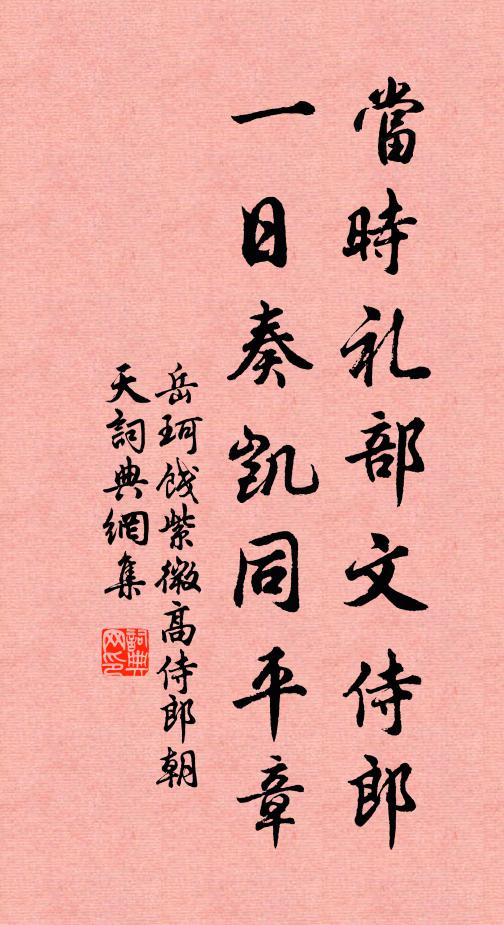 當時礼部文侍郎
一日奏凱同平章
岳珂餞紫微高侍郎朝
天詞典網集
詞典
网印